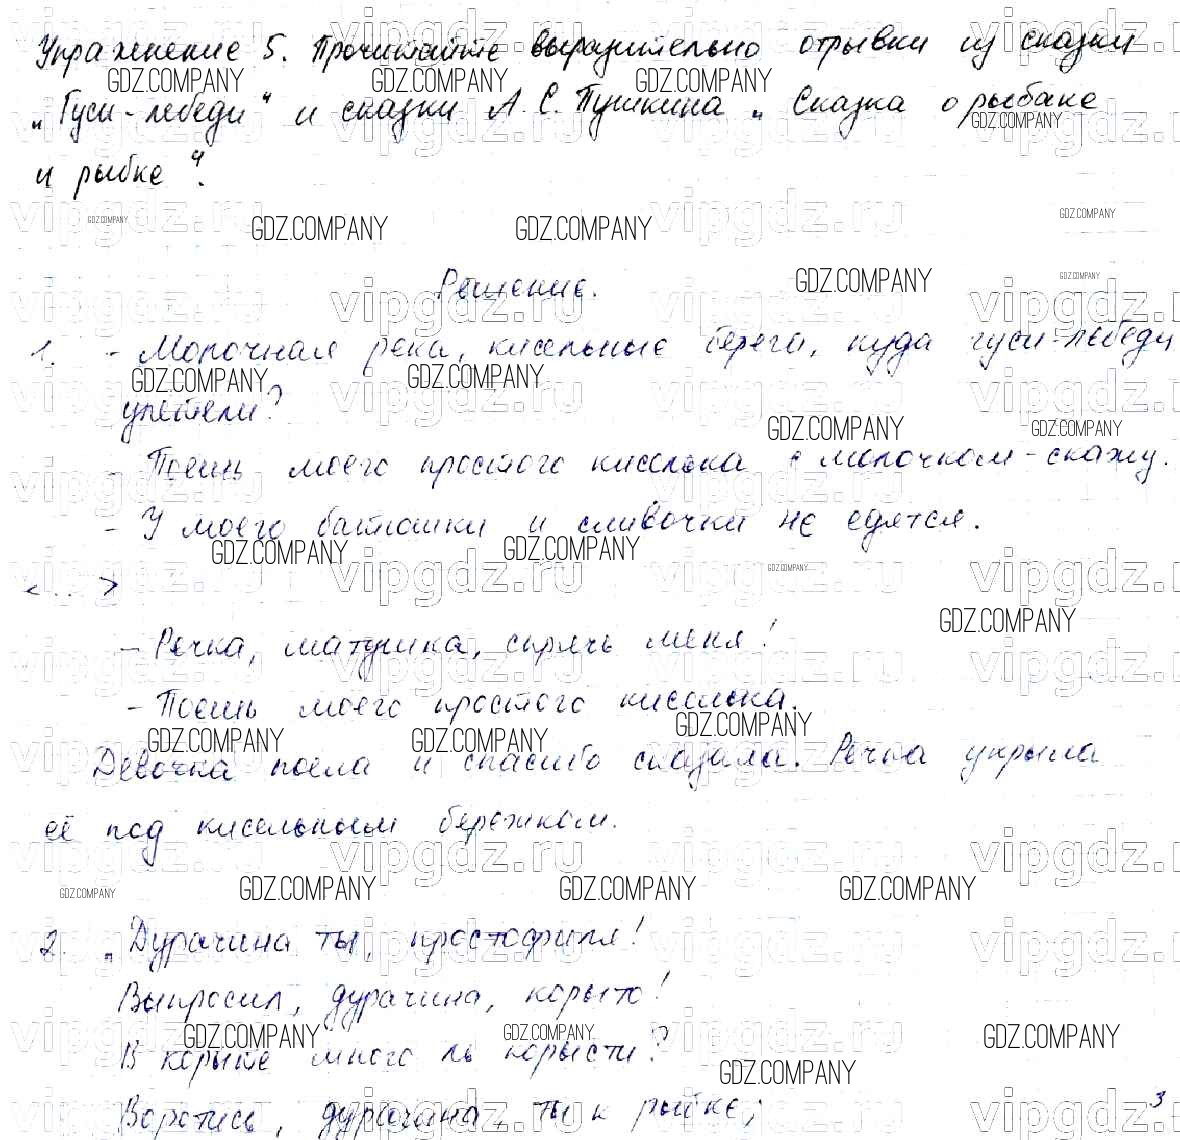 Упражнение 5. Прочитайте выразительно отрывки из сказки
„Гуси-лебеди“ и сказки А. С. Пушкина „Сказка о рыбаке
и рыбке“.
Решение.
1. - Молочная река, кисельные берега, куда гуси-лебеди
улетели?
- Поешь моего простого киселька с молочком - скажу.
- У моего батюшки и сливочки не едятся.
<...>
- Речка, матушка, спрячь меня!
- Поешь моего простого киселька.
Девочка поела и спасибо сказала. Речка укрыла
её под кисельным бережком.
2. „Дурачина ты, простофиля!
Выпросил, дурачина, корыто!
В корыте много ль корысти?
Воротись, дурачина, ты к рыбке;
3
vipgdz.ru
GDZ.COMPANY